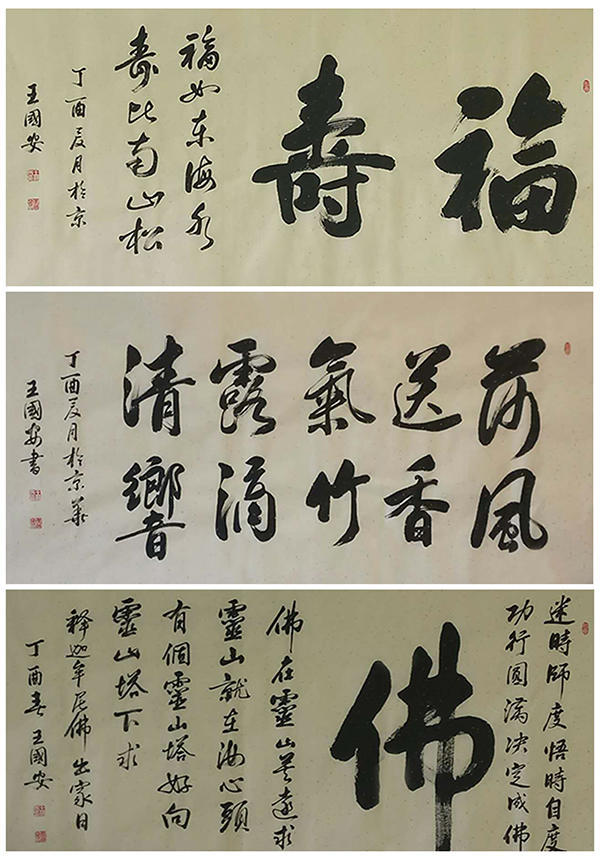 福壽
福如东海水
寿比南山松
丁酉辰月於京
王國安
荷風
送香
氣竹
露滴
清響
丁酉辰月於京華
王國安書
迷時師度悟時自度
功行圓滿決定成佛
佛
佛在靈山莫遠求
靈山就在汝心頭
有個靈山塔好向
靈山塔下求
釋迦牟尼佛出家日
丁酉春王國安